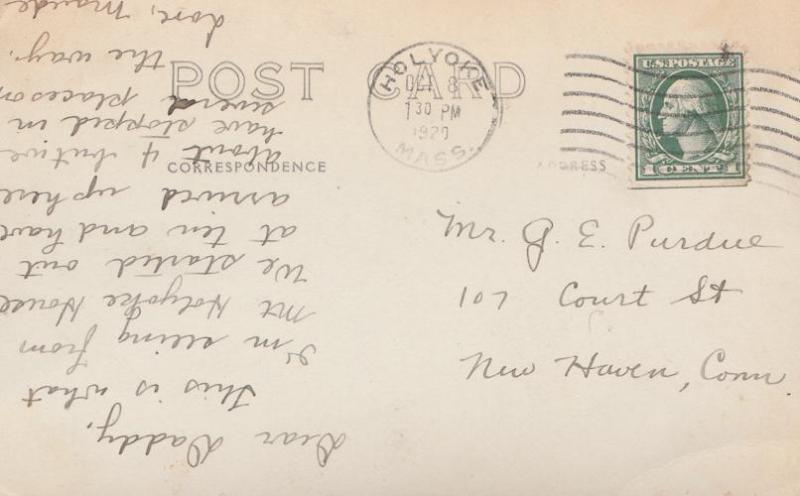 POST CARD
HOLYOKE
OCT 8
730 PM
1920
MASS.
U.S. POSTAGE
1 CENT 1
CORRESPONDENCE
ADDRESS
Mr. J. E. Purdue
107 Court St
New Haven, Conn.
Dear Daddy,
This is what
I'm seeing from
Mt Holyoke House
We started out
at ten and have
arrived up here
about 4 but we
have stopped in
several places on
the way.
Love, Maude